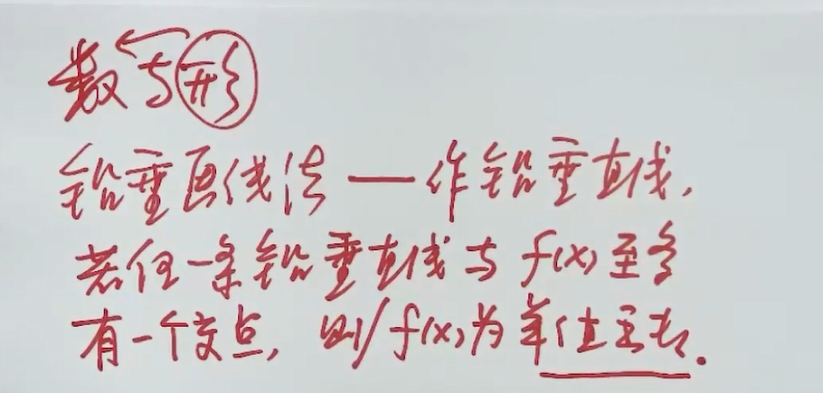 数与形
铅垂画线法——作铅垂直线,
若任一条铅垂直线与f(x)至多
有一个交点, 则f(x)为单值函数.